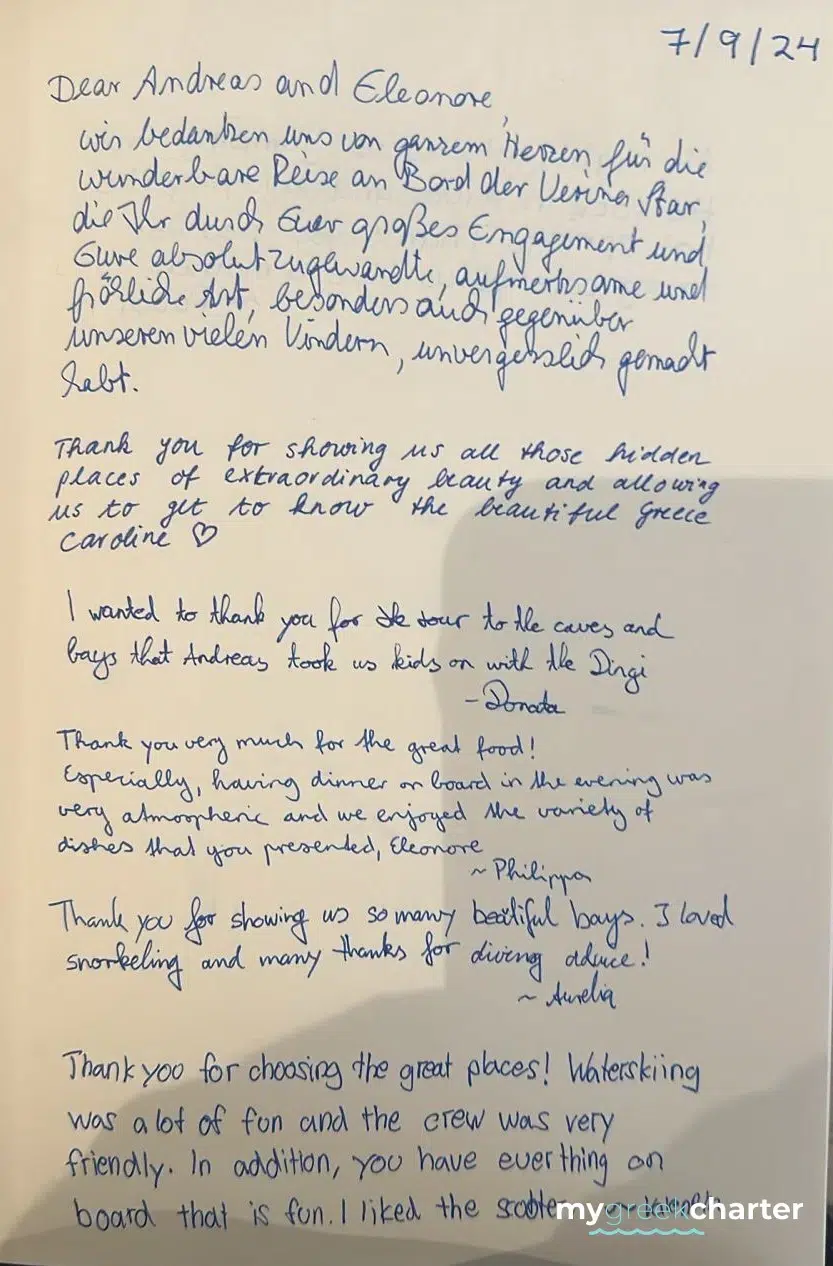 7/9/24
Dear Andreas and Eleonore,
wir bedanken uns von ganzem Herzen für die
wunderbare Reise an Bord der Verina Star,
die Ihr durch Euer großes Engagement und
Eure absolut zugewandte, aufmerksame und
fröhliche Art, besonders auch gegenüber
unseren vielen Kindern, unvergesslich gemacht
habt.
Thank you for showing us all those hidden
places of extraordinary beauty and allowing
us to get to know the beautiful Greece
Caroline ♡
I wanted to thank you for the tour to the caves and
bays that Andreas took us kids on with the Dingi
- Donata
Thank you very much for the great food!
Especially, having dinner on board in the evening was
very atmospheric and we enjoyed the variety of
dishes that you presented, Eleonore
~ Philippa
Thank you for showing us so many beatiful bays. I loved
snorkeling and many thanks for diving advice!
~ Aurelia
Thank you for choosing the great places! Waterskiing
was a lot of fun and the crew was very
friendly. In addition, you have everthing on
board that is fun. I liked the scooter
mygreekcharter